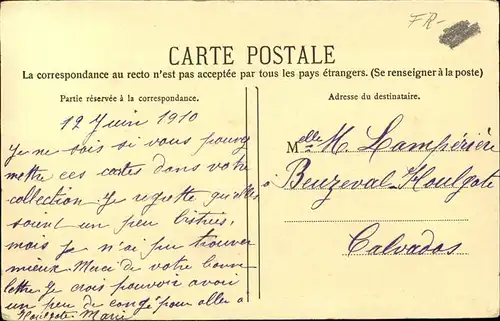 FR-
CARTE POSTALE
La correspondance au recto n'est pas acceptée par tous les pays étrangers. (Se renseigner à la poste)
Partie réservée à la correspondance.
Adresse du destinataire.
12 Juin 1910
Je ne sais si vous pourrez
mettre ces cartes dans votre
collection. Je regrette qu'elles
soient un peu bistrées,
mais je n'ai pu trouver
mieux. Merci de votre bonne
lettre. Je crois pouvoir avoir
un peu de congé pour aller à
Houlgate. Marie
Melle M. Lampérière
à Beuzeval-Houlgate
Calvados